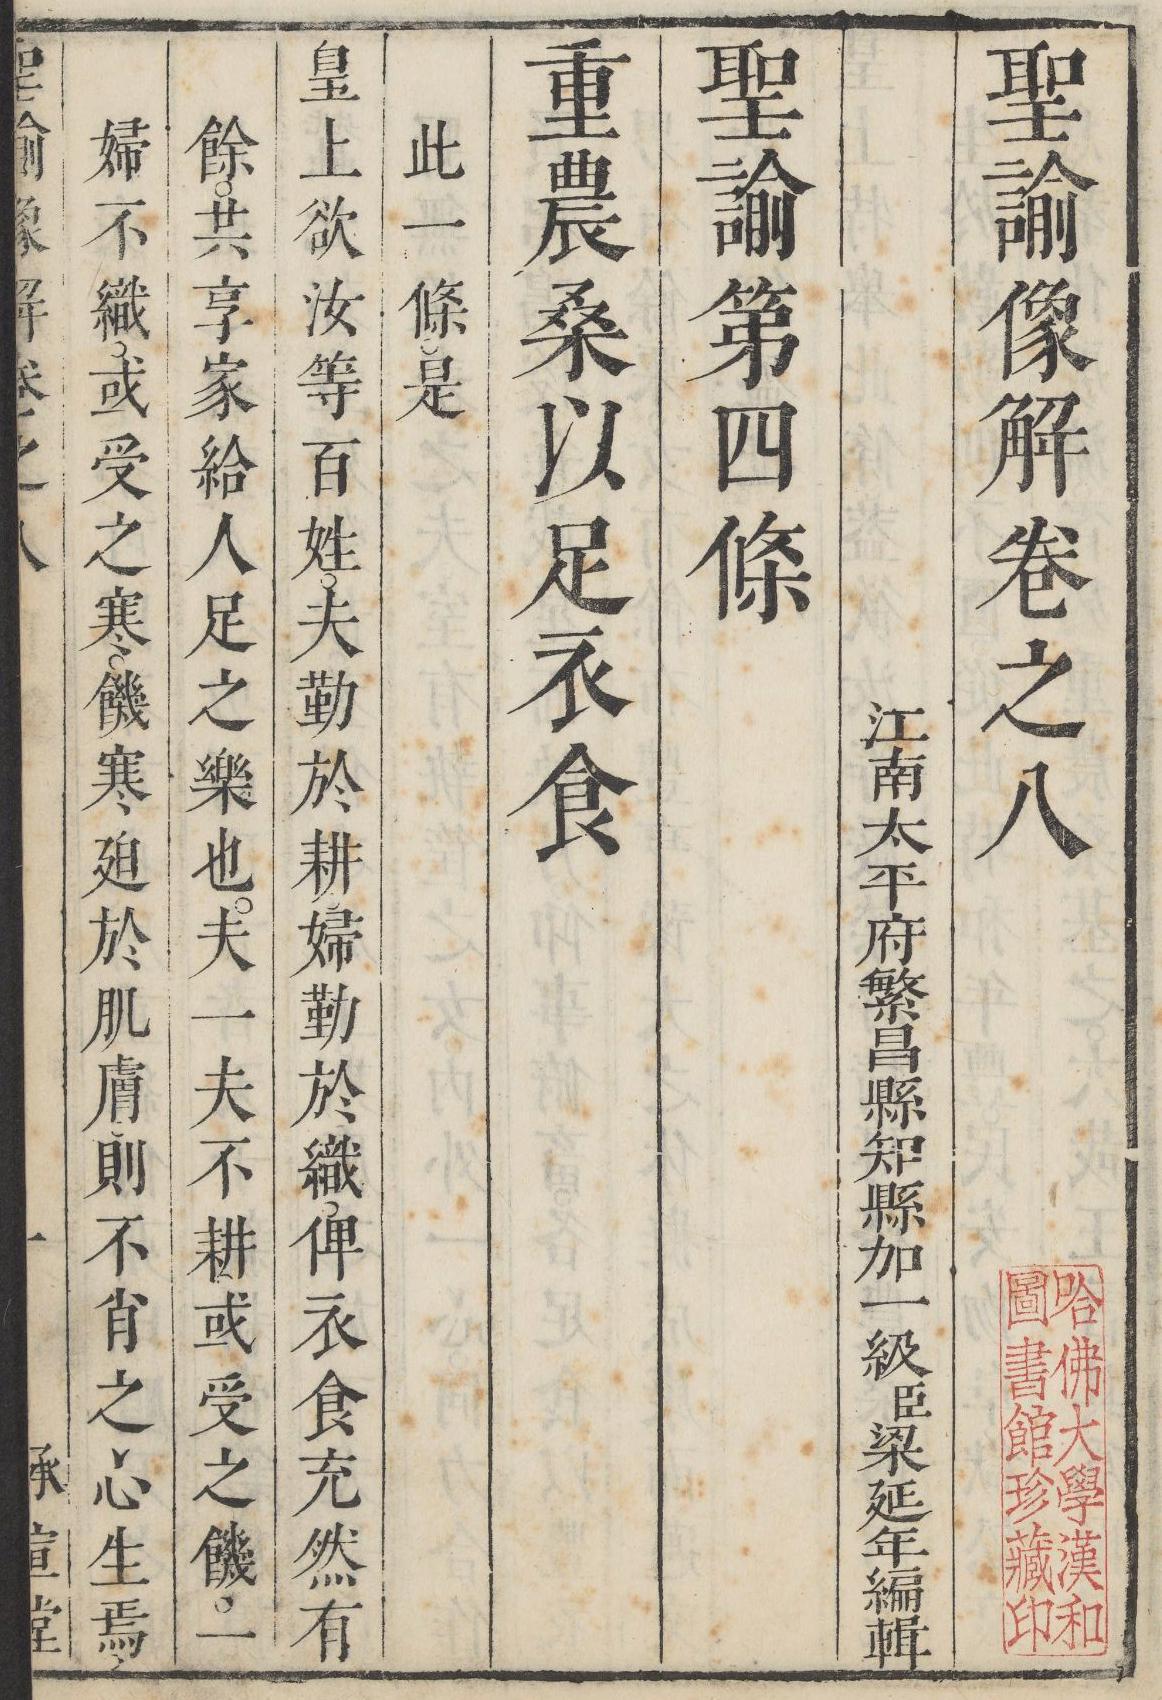 聖諭像解卷之八
江南太平府繁昌縣知縣加一級臣梁延年編輯
聖諭第四條
重農桑以足衣食
此一條是
皇上欲汝等百姓夫勤於耕婦勤於織俾衣食充然有
餘共享家給人足之樂也夫一夫不耕或受之饑一
婦不織或受之寒饑寒廹於肌膚則不肖之心生焉
聖諭像解卷之八 一 承宣堂
哈佛大學漢和
圖書館珍藏印